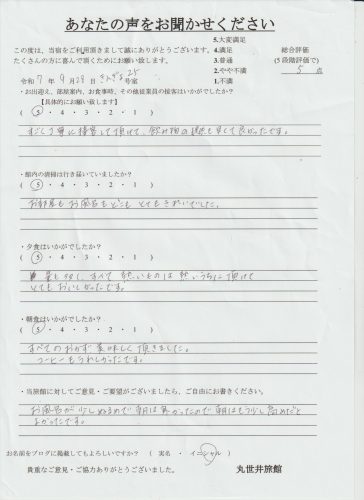 あなたの声をお聞かせください
この度は、当宿をご利用頂きまして誠にありがとうございます。
たくさんの方に喜んで頂くためにお願い致します。
5.大変満足
4.満足
3.普通
2.やや不満
1.不満
総合評価
(5段階評価で)
5 点
令和 7 年 9月 29日 25 号室
・お出迎え、部屋案内、お食事時、その他従業員の接客はいかがでしたか?
【具体的にお願い致します】
( 5 ・ 4 ・ 3 ・ 2 ・ 1 )
すごく丁寧に接客して頂けて、飲み物の提供も早くて良かったです。
・館内の清掃は行き届いていましたか?
( 5 ・ 4 ・ 3 ・ 2 ・ 1 )
お部屋もお風呂もどこもとてもきれいでした。
・夕食はいかがでしたか?
( 5 ・ 4 ・ 3 ・ 2 ・ 1 )
量も すべて 熱いものは熱いうちに頂けて
とてもおいしかったです。
・朝食はいかがでしたか?
( 5 ・ 4 ・ 3 ・ 2 ・ 1 )
すべてのおかず美味しく頂きました。
コーヒーもうれしかったです。
・当旅館に対してご意見・ご要望がございましたら、ご自由にお書きください。
お風呂が少しぬるめで 朝は 良かったので朝はもう少し高めだと
よかったです。
お名前をブログに掲載してもよろしいですか? ( 実名 ・ イニシャル )
貴重なご意見・ご協力ありがとうございました。
丸世井旅館